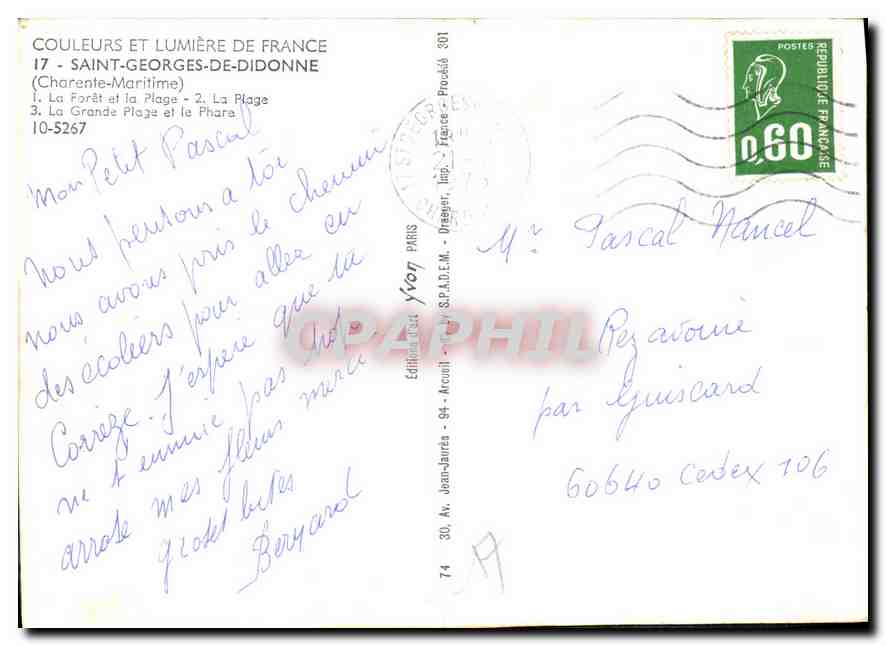 COULEURS ET LUMIÈRE DE FRANCE
17 - SAINT-GEORGES-DE-DIDONNE
(Charente-Maritime)
1. La Forêt et la Plage - 2. La Plage
3. La Grande Plage et le Phare
10-5267
Mon Petit Pascal
nous pensons a toi
nous avons pris le chemin
des écoliers pour aller en
Corrèze. J'espère que tu
ne t ennuie pas
arrose mes fleurs merci
Bernard
Editions d'art Yvon PARIS
30, Av. Jean-Jaurès - 94 - Arcueil - by S.P.A.D.E.M. - Draeger, Imp. - France - Procédé 301
74
POSTES
REPUBLIQUE FRANÇAISE
0,60
Mr. Pascal Nancel
par Guiscard
60640 Cedex 106
17
CPAPHIL